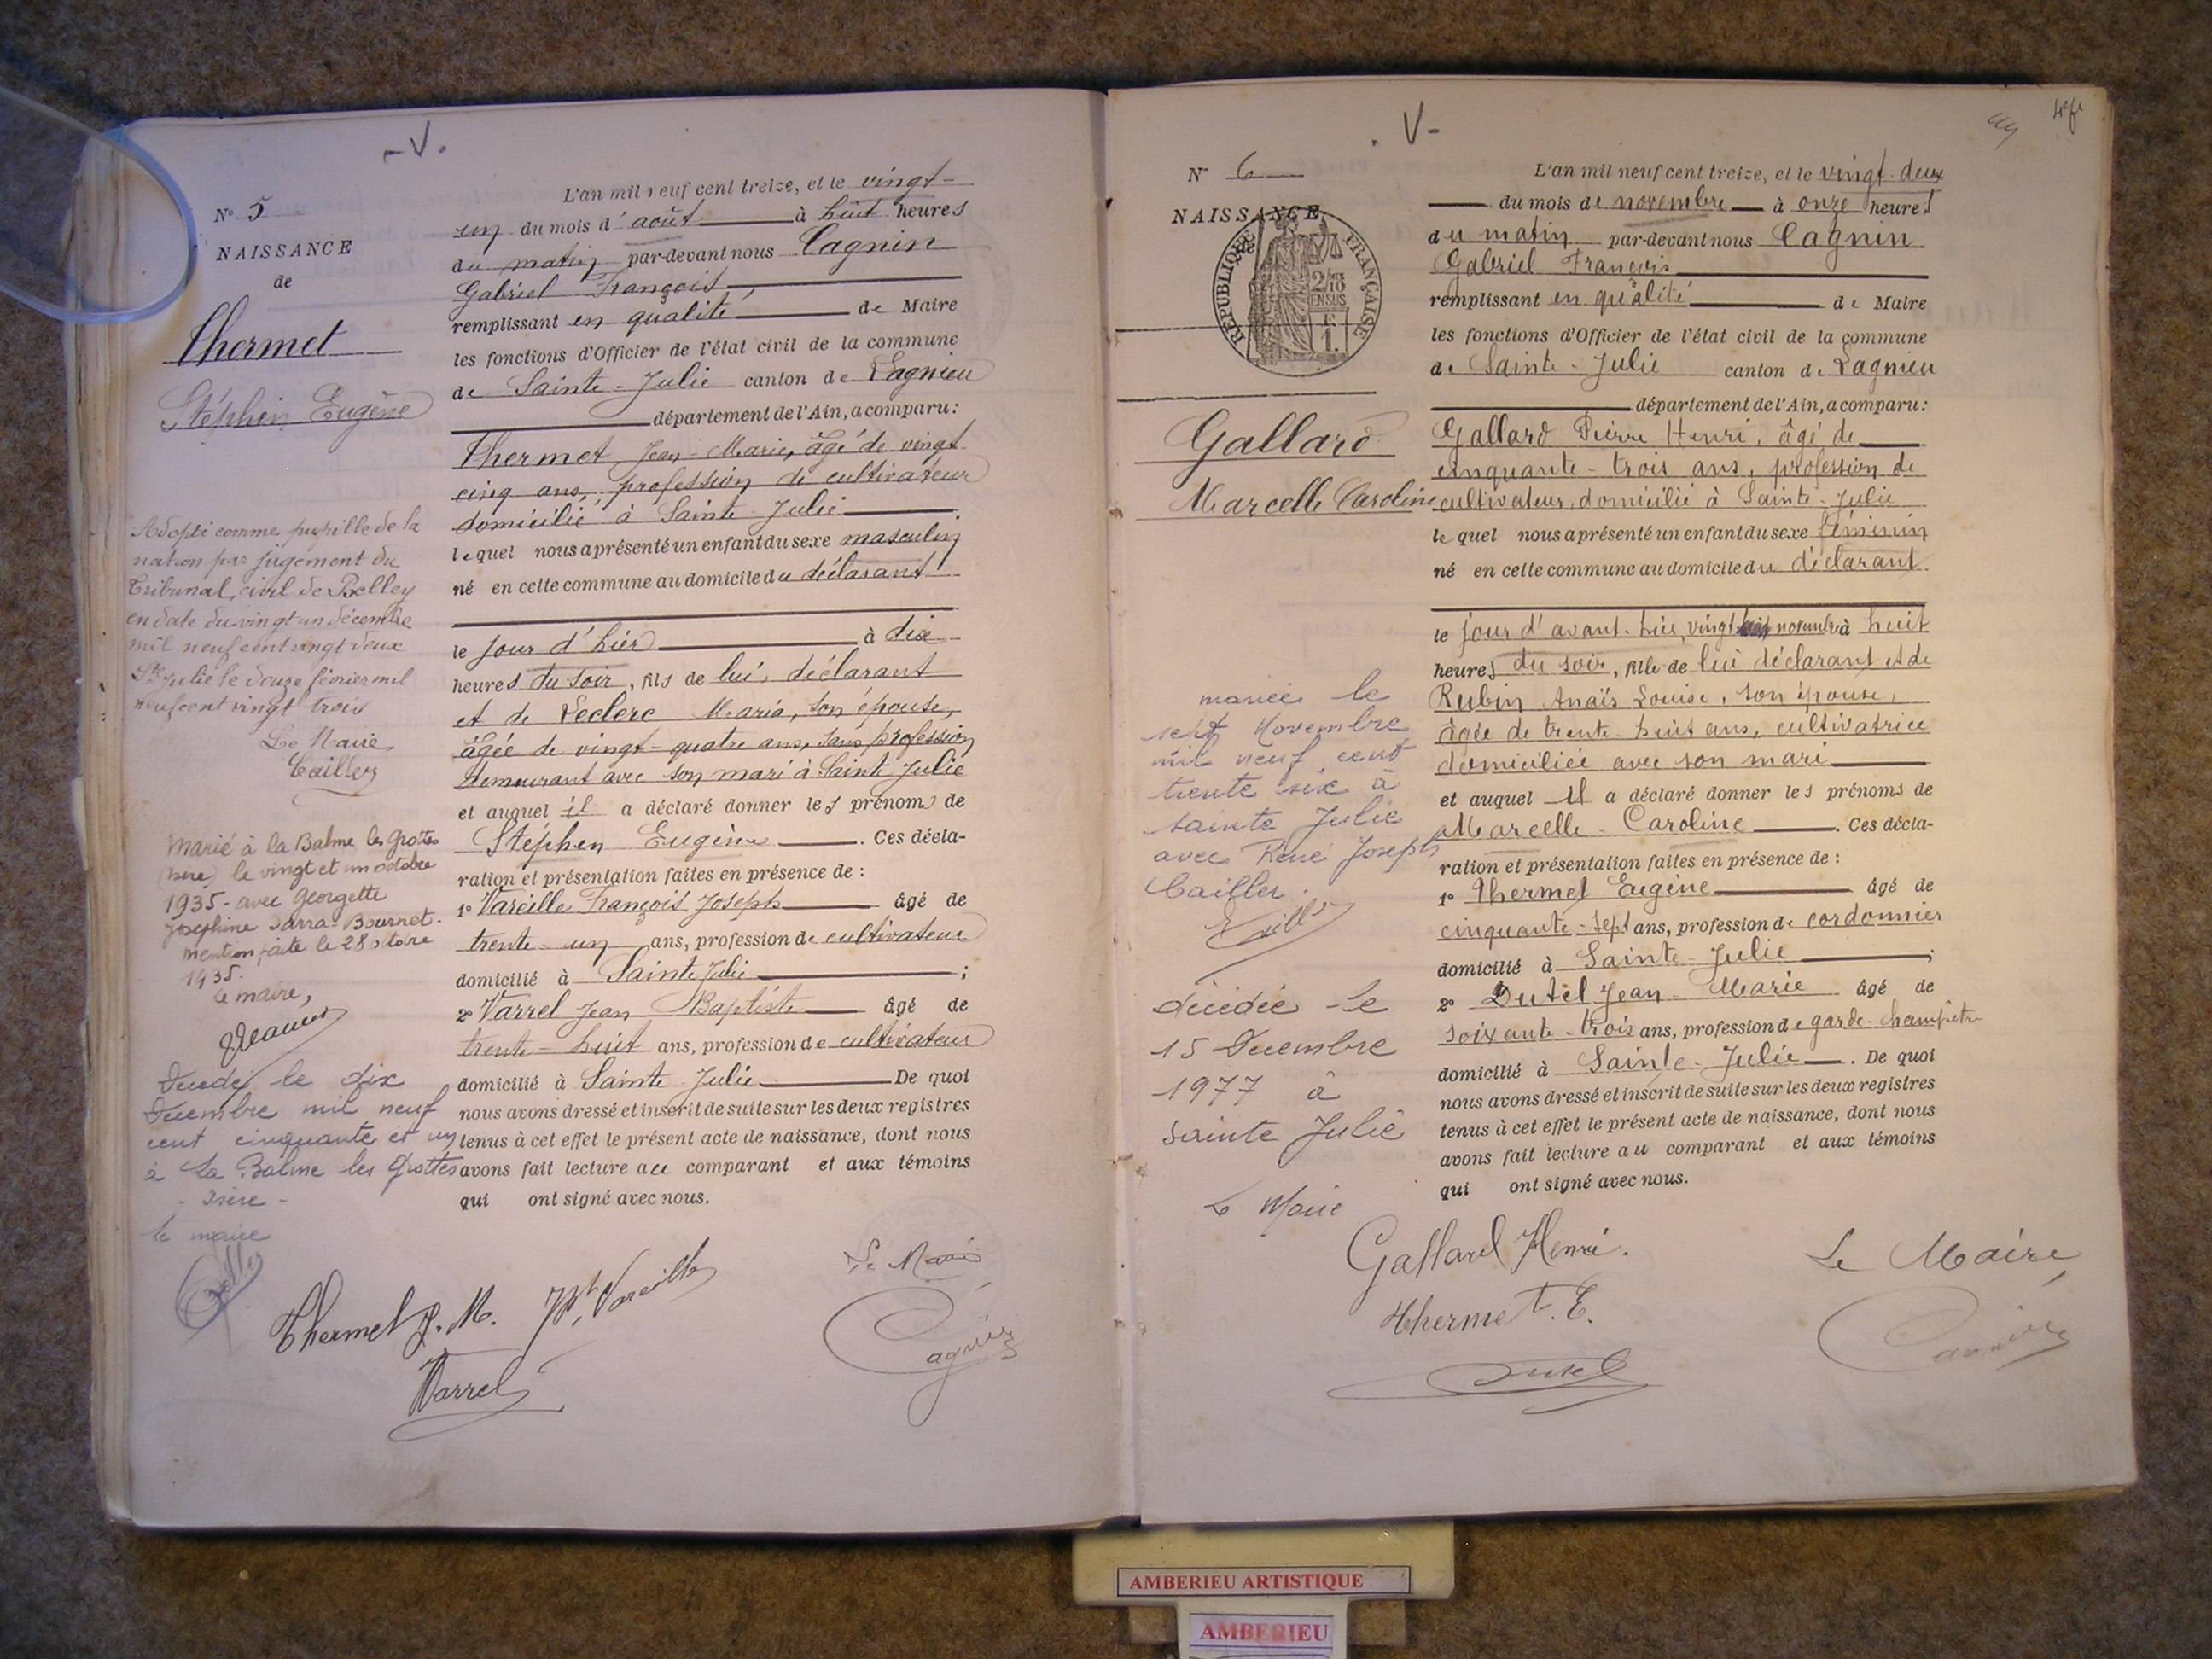 - V -
N° 5
NAISSANCE
de
Thermet
Stéphen Eugène
Adopté comme pupille de la
nation par jugement du
Tribunal civil de Belley
en date du vingt un décembre
mil neuf cent vingt deux
Ste Julie le douze février mil
neuf cent vingt trois
Le Maire
Cailler
Marié à la Balme les Grottes
(Isère) le vingt et un octobre
1935 - avec Georgette
Joséphine Darra-Bournet.
mention faite le 28 octobre
1935.
Le maire,
Décédé le dix
Décembre mil neuf
cent cinquante et un
à La Balme les Grottes
- Isère -
le maire
L'an mil neuf cent treize, et le vingt-
un du mois d'août à huit heures
du matin par-devant nous Cagnin
Gabriel François,
remplissant en qualité de Maire
les fonctions d'Officier de l'état civil de la commune
de Sainte-Julie canton de Lagnieu
département de l'Ain, a comparu :
Thermet Jean-Marie, âgé de vingt
cinq ans, profession de cultivateur
domicilié à Sainte-Julie
lequel nous a présenté un enfant du sexe masculin
né en cette commune au domicile du déclarant
le jour d'hier à dix
heures du soir, fils de lui, déclarant
et de Leclerc Maria, son épouse,
âgée de vingt-quatre ans, sans profession
demeurant avec son mari à Sainte Julie
et auquel il a déclaré donner les prénoms de
Stéphen Eugène. Ces décla-
ration et présentation faites en présence de :
1° Vareille François Joseph âgé de
trente-un ans, profession de cultivateur
domicilié à Sainte Julie ;
2° Varrel Jean Baptiste âgé de
trente-huit ans, profession de cultivateur
domicilié à Sainte Julie De quoi
nous avons dressé et inscrit de suite sur les deux registres
tenus à cet effet le présent acte de naissance, dont nous
avons fait lecture au comparant et aux témoins
qui ont signé avec nous.
Le Maire
Thermet J. M. Vareille
Varrel
Cagnin
V -
N° 6
NAISSANCE
de
RÉPUBLIQUE FRANÇAISE
2/10 EN SUS
1.
Gallard
Marcelle Caroline
mariée le
sept Novembre
mil neuf cent
trente six à
sainte Julie
avec René Joseph
Cailler.
décédée le
15 Décembre
1977 à
sainte Julie
Le Maire
L'an mil neuf cent treize, et le vingt-deux
du mois de novembre à onze heures
du matin par-devant nous Cagnin
Gabriel François
remplissant en qualité de Maire
les fonctions d'Officier de l'état civil de la commune
de Sainte-Julie canton de Lagnieu
département de l'Ain, a comparu :
Gallard Pierre Henri, âgé de
cinquante-trois ans, profession de
cultivateur, domicilié à Sainte-Julie
lequel nous a présenté un enfant du sexe féminin
né en cette commune au domicile du déclarant
le jour d'avant-hier, vingt novembre à huit
heures du soir, fille de lui déclarant et de
Rubin Anaïs Louise, son épouse,
âgée de trente-huit ans, cultivatrice
domiciliée avec son mari
et auquel il a déclaré donner les prénoms de
Marcelle-Caroline. Ces décla-
ration et présentation faites en présence de :
1° Thermet Eugène âgé de
cinquante-sept ans, profession de cordonnier
domicilié à Sainte-Julie ;
2° Dutel Jean-Marie âgé de
soixante-trois ans, profession de garde-champêtre
domicilié à Sainte-Julie. De quoi
nous avons dressé et inscrit de suite sur les deux registres
tenus à cet effet le présent acte de naissance, dont nous
avons fait lecture au comparant et aux témoins
qui ont signé avec nous.
Gallard Henri.
Le Maire
Thermet. E.
Dutel
Cagnin
AMBERIEU ARTISTIQUE
AMBERIEU